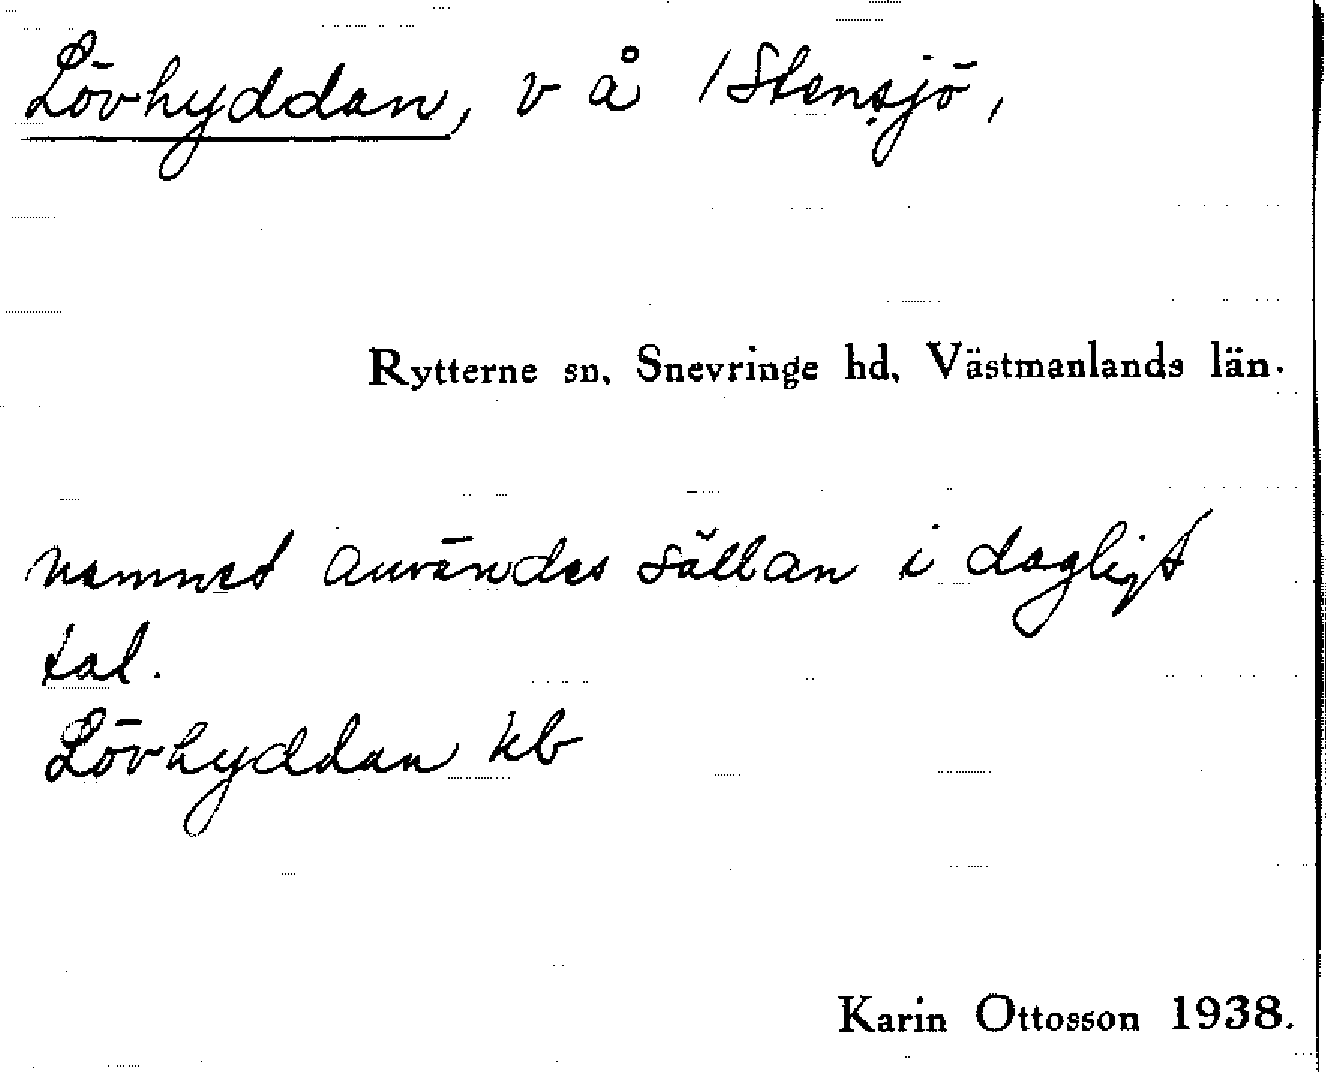 Lövhyddan, v å /Stensjö,
Rytterne sn, Snevringe hd, Västmanlands län.
namnet användes sällan i dagligt
tal.
Lövhyddan kb
Karin Ottosson 1938.